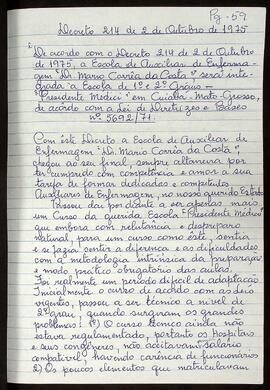 Pg-59
Decreto 214 de 2 de Outubro de 1975
"De acordo com o Decreto 214 de 2 de Outubro
de 1975, a Escola de Auxiliar de Enferma-
gem "Dr. Mario Corrêa da Costa" será inte-
grada a Escola de 1º e 2º Graus -
Presidente Medici" em Cuiabá - Mato-Grosso,
de acordo com a Lei de Diretrizes e Bases
nº 5692/71.
Com êste Decreto a Escola de Auxiliar de
Enfermagem "Dr. Mario Corrêa da Costa"
chegou ao seu final, sempre altaneira por
ter cumprido com competência e amor a sua
tarefa de formar dedicados e competentes
Auxiliares de Enfermagem, no nosso querido Estado
Passou daí por diante a ser apenas mais
um Curso da querida Escola "Presidente Medici"
que embora com relutância e despreparo
natural, para um curso como êste, sentia
e se fazia sentir a diferença e as dificuldades
com a metodologia intrínsica da preparação
e modo prático obrigatório das aulas.
Foi realmente um período difícil de adaptação
Inicialmente o curso de acordo com as leis
vigentes, passou a ser técnico a nível de
2º grau, quando surgiram os grandes
problemas: 1º) O curso técnico ainda não
estava regulamentado, portanto os Hospitais
e seus congêneres, não aceitavam salário
compatível havendo carência de funcionários
2) Os poucos elementos que matriculavam